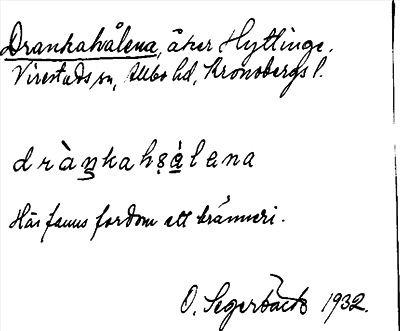 Drankahålena, åker Hyttinge.
Virestads sn, Allbo hd, Kronobergs l.
dràŋkahs̩ålena
Här fanns fordom ett bränneri.
O. Segerbäck 1932.